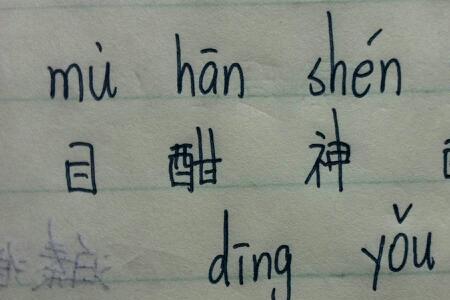 mù hān shén
目 酣 神
dīng yǒu